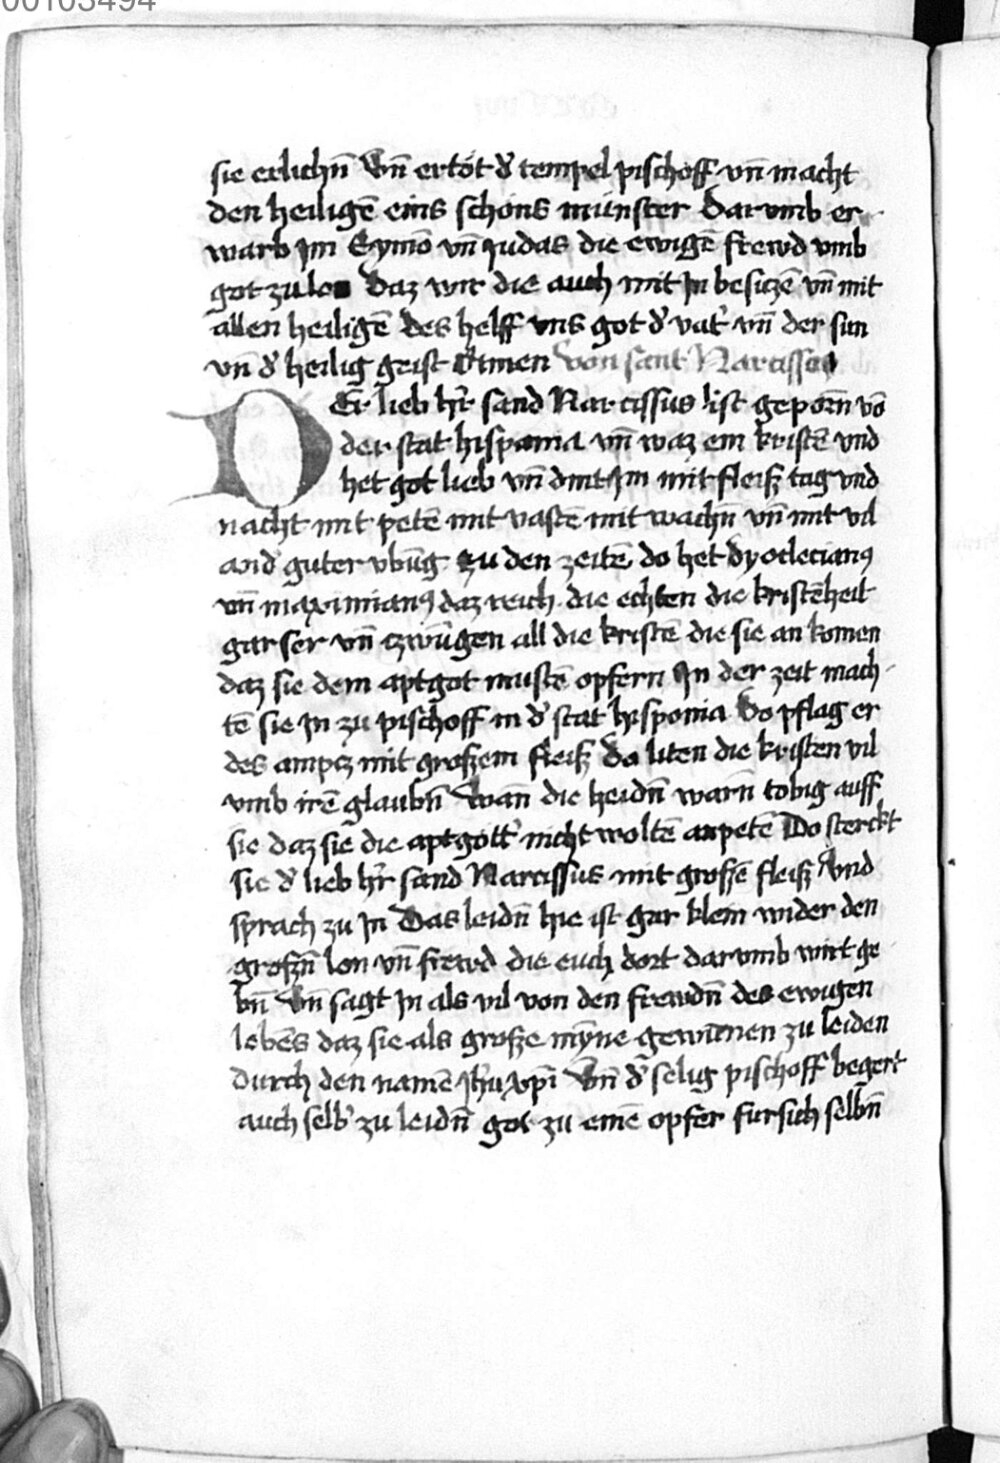 00103494
sie erlichn̄ Vn̄ ertöt d̾ tempel pischoff vn̄ macht
den heiligē eins schöns münster Dar vmb er
warb jm Symō vn̄ judas die ewigē frewd vmb
got zu lon Daz wir die auch mit jn besiczē vn̄ mit
allen heiligē Des helff vns got d̾ vat̾ vn̄ der sun
vn̄ d̾ heilig geist Amen Von sant Narcisso
DEr lieb hr̄ sand Narcissus ist geporn̄ vō
der stat hispania vn̄ waz ein kristē vnd
het got lieb vn̄ dint jm mit fleiß tag vnd
nacht mit petē mit vastē mit wachn̄ vn̄ mit vil
and̾ guter vbūg zu den zeitē do het dyocleciang
vn̄ maximianꝰ daz reich die echten die kristēheit
gar ser vn̄ czwūgen all die kristē die sie an komen
daz sie dem aptgot mustē opfern Jn der zeit mach
tē sie jn zu pischoff in d̾ stat hisponia Do pflag er
des ampcz mit großem fleiß Do liten die kristen vil
vmb irē glaubn̄ Wan̄ die heidn̄ warn̄ tobig auff
sie daz sie die aptgött̾ nicht woltē anpetē Do sterckt
sie d̾ lieb hr̄ sand Narcissus mit großē fleiß Vnd
sprach zu jn Das leidn̄ hie ist gar klein wider den
großn̄ lon vn̄ frewd die euch dort dar vmb wirt ge
bn̄ Vn̄ sagt jn als vil von den frewdn̄ des ewigen
lebēs daz sie als große mȳne gewūnen zu leiden
durch den namē jhū xp̄i Vn̄ d̾ selig pischoff begert
auch selb̾ zu leidn̄ got zu einē opfer für sich selbn̄